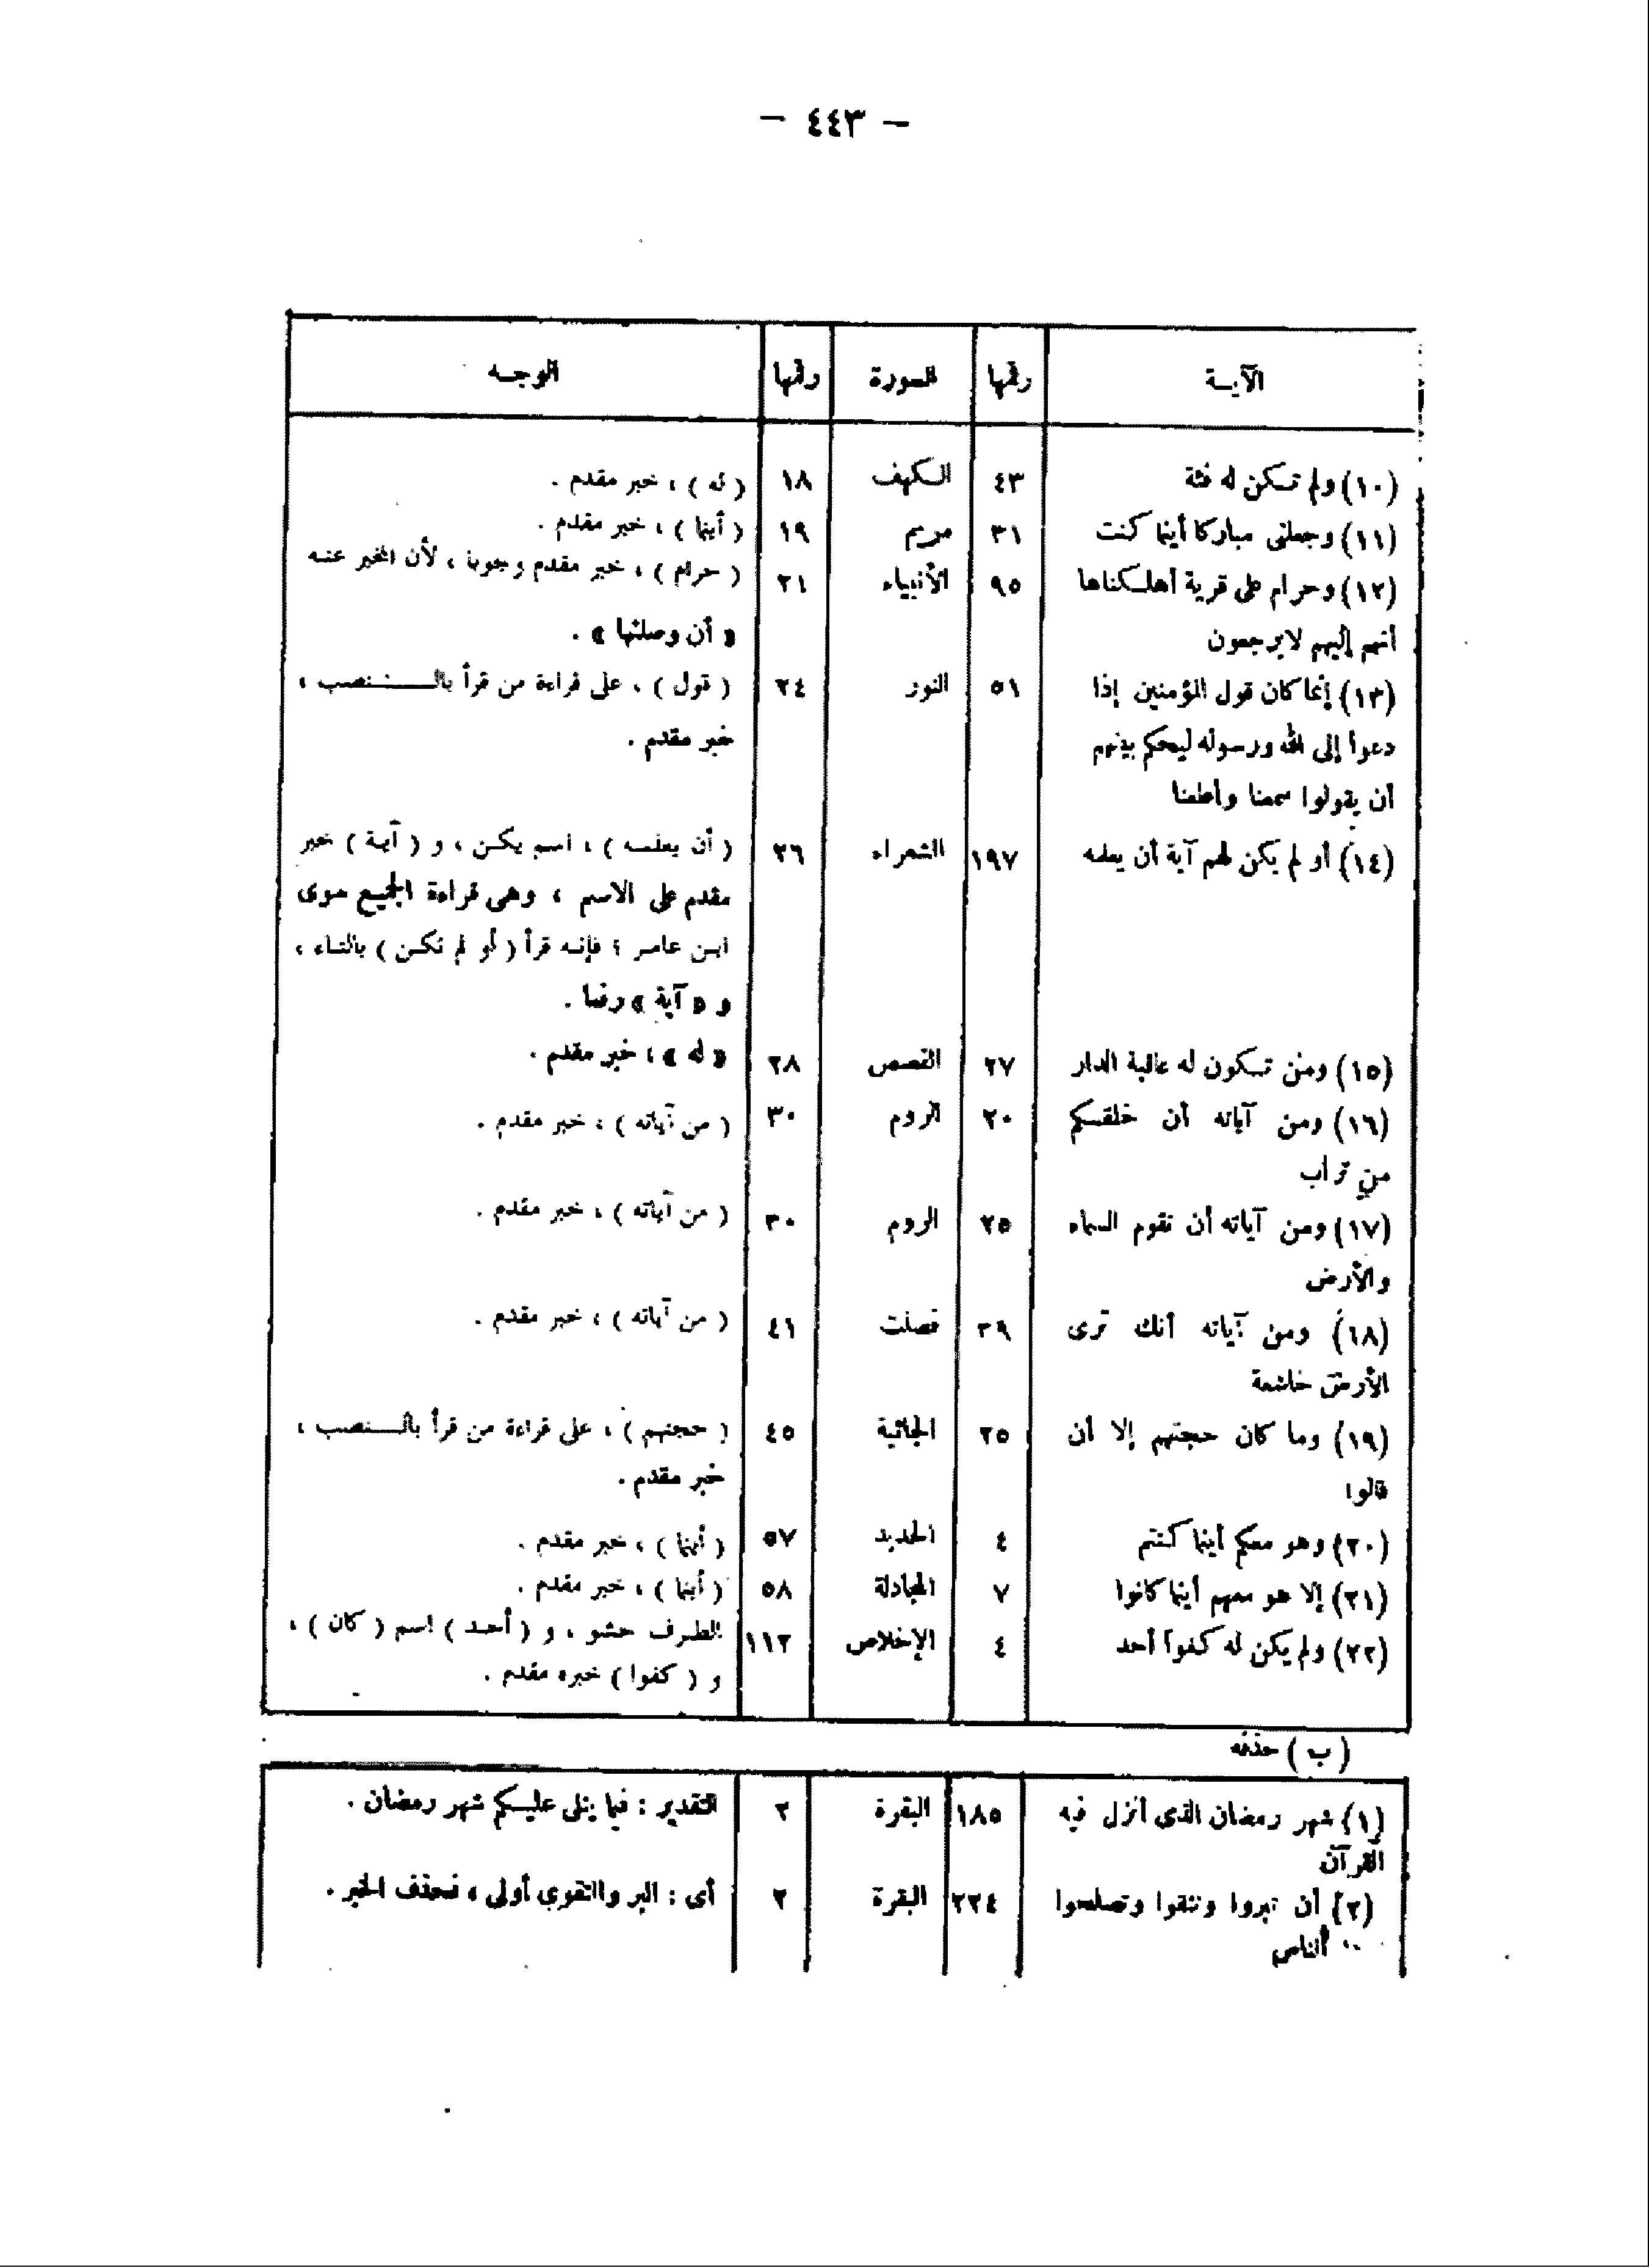 - ٤٤٣ -
الآيـة رقمها السورة رقمها الوجـه
(١٠) ولم تـكن له فئة ٤٣ الـكهف ١٨ ( له ) ، خبر مقدم .
(١١) وجعلنى مباركا أينما كنت ٣١ مريم ١٩ ( أينما ) ، خبر مقدم .
(١٢) وحرام على قرية أهلـكناها ٩٥ الأنبياء ٢١ ( حرام ) ، خبر مقدم وجوبا ، لأن المخبر عنـه
أنهم إليهم لايرجعون « أن وصلتها » .
(١٣) إنما كان قول المؤمنين إذا ٥١ النور ٢٤ ( قول ) ، على قراءة من قرأ بالـــنصب ،
دعوا إلى الله ورسوله ليحكم بينهم خبر مقدم .
أن يقولوا سمعنا وأطعنا
(١٤) أو لم يكن لهم آية أن يعلمه ١٩٧ الشعراء ٢٦ ( أن يعلمـه ) ، اسم يكـن ، و ( آيـة ) خبر
مقدم على الاسم ، وهى قراءة الجميع سوى
ابـن عامـر ؛ فإنـه قرأ ( أو لم تكـن ) بالتـاء ،
و « آية » رفعا .
(١٥) ومن تـكون له عاقبة الدار ٣٧ القصص ٢٨ « له » ، خبر مقدم .
(١٦) ومن آياته أن خلقـكم ٢٠ الروم ٣٠ ( من آياته ) ، خبر مقدم .
من تراب
(١٧) ومن آياته أن تقوم السماء ٢٥ الروم ٣٠ ( من آياته ) ، خبر مقدم .
والأرض
(١٨) ومن آياته أنك ترى ٣٩ فصلت ٤١ ( من آياته ) ، خبر مقدم .
الأرض خاشعة
(١٩) وما كان حجتهم إلا أن ٢٥ الجاثية ٤٥ ( حجتهم ) ، على قراءة من قرأ بالـــنصب ،
قالوا خبر مقدم .
(٢٠) وهو معكم أينما كنتم ٤ الحديد ٥٧ ( أينما ) ، خبر مقدم .
(٢١) إلا هو معهم أينما كانوا ٧ المجادلة ٥٨ ( أينما ) ، خبر مقدم .
(٢٢) ولم يكن له كفوا أحد ٤ الإخلاص ١١٢ الظـرف حشو ، و ( أحـد ) اسم ( كان ) ،
و ( كفوا ) خبره مقدم .
( ب ) حذفه
(١) شهر رمضان الذى أنزل فيه ١٨٥ البقرة ٢ التقدير : فيما يتلى عليـكم شهر رمضان .
القرآن
(٢) أن تبروا وتتقوا وتصلحوا ٢٢٤ البقرة ٢ أى : البر والتقوى أولى ، فحذف الخبر .
الناس